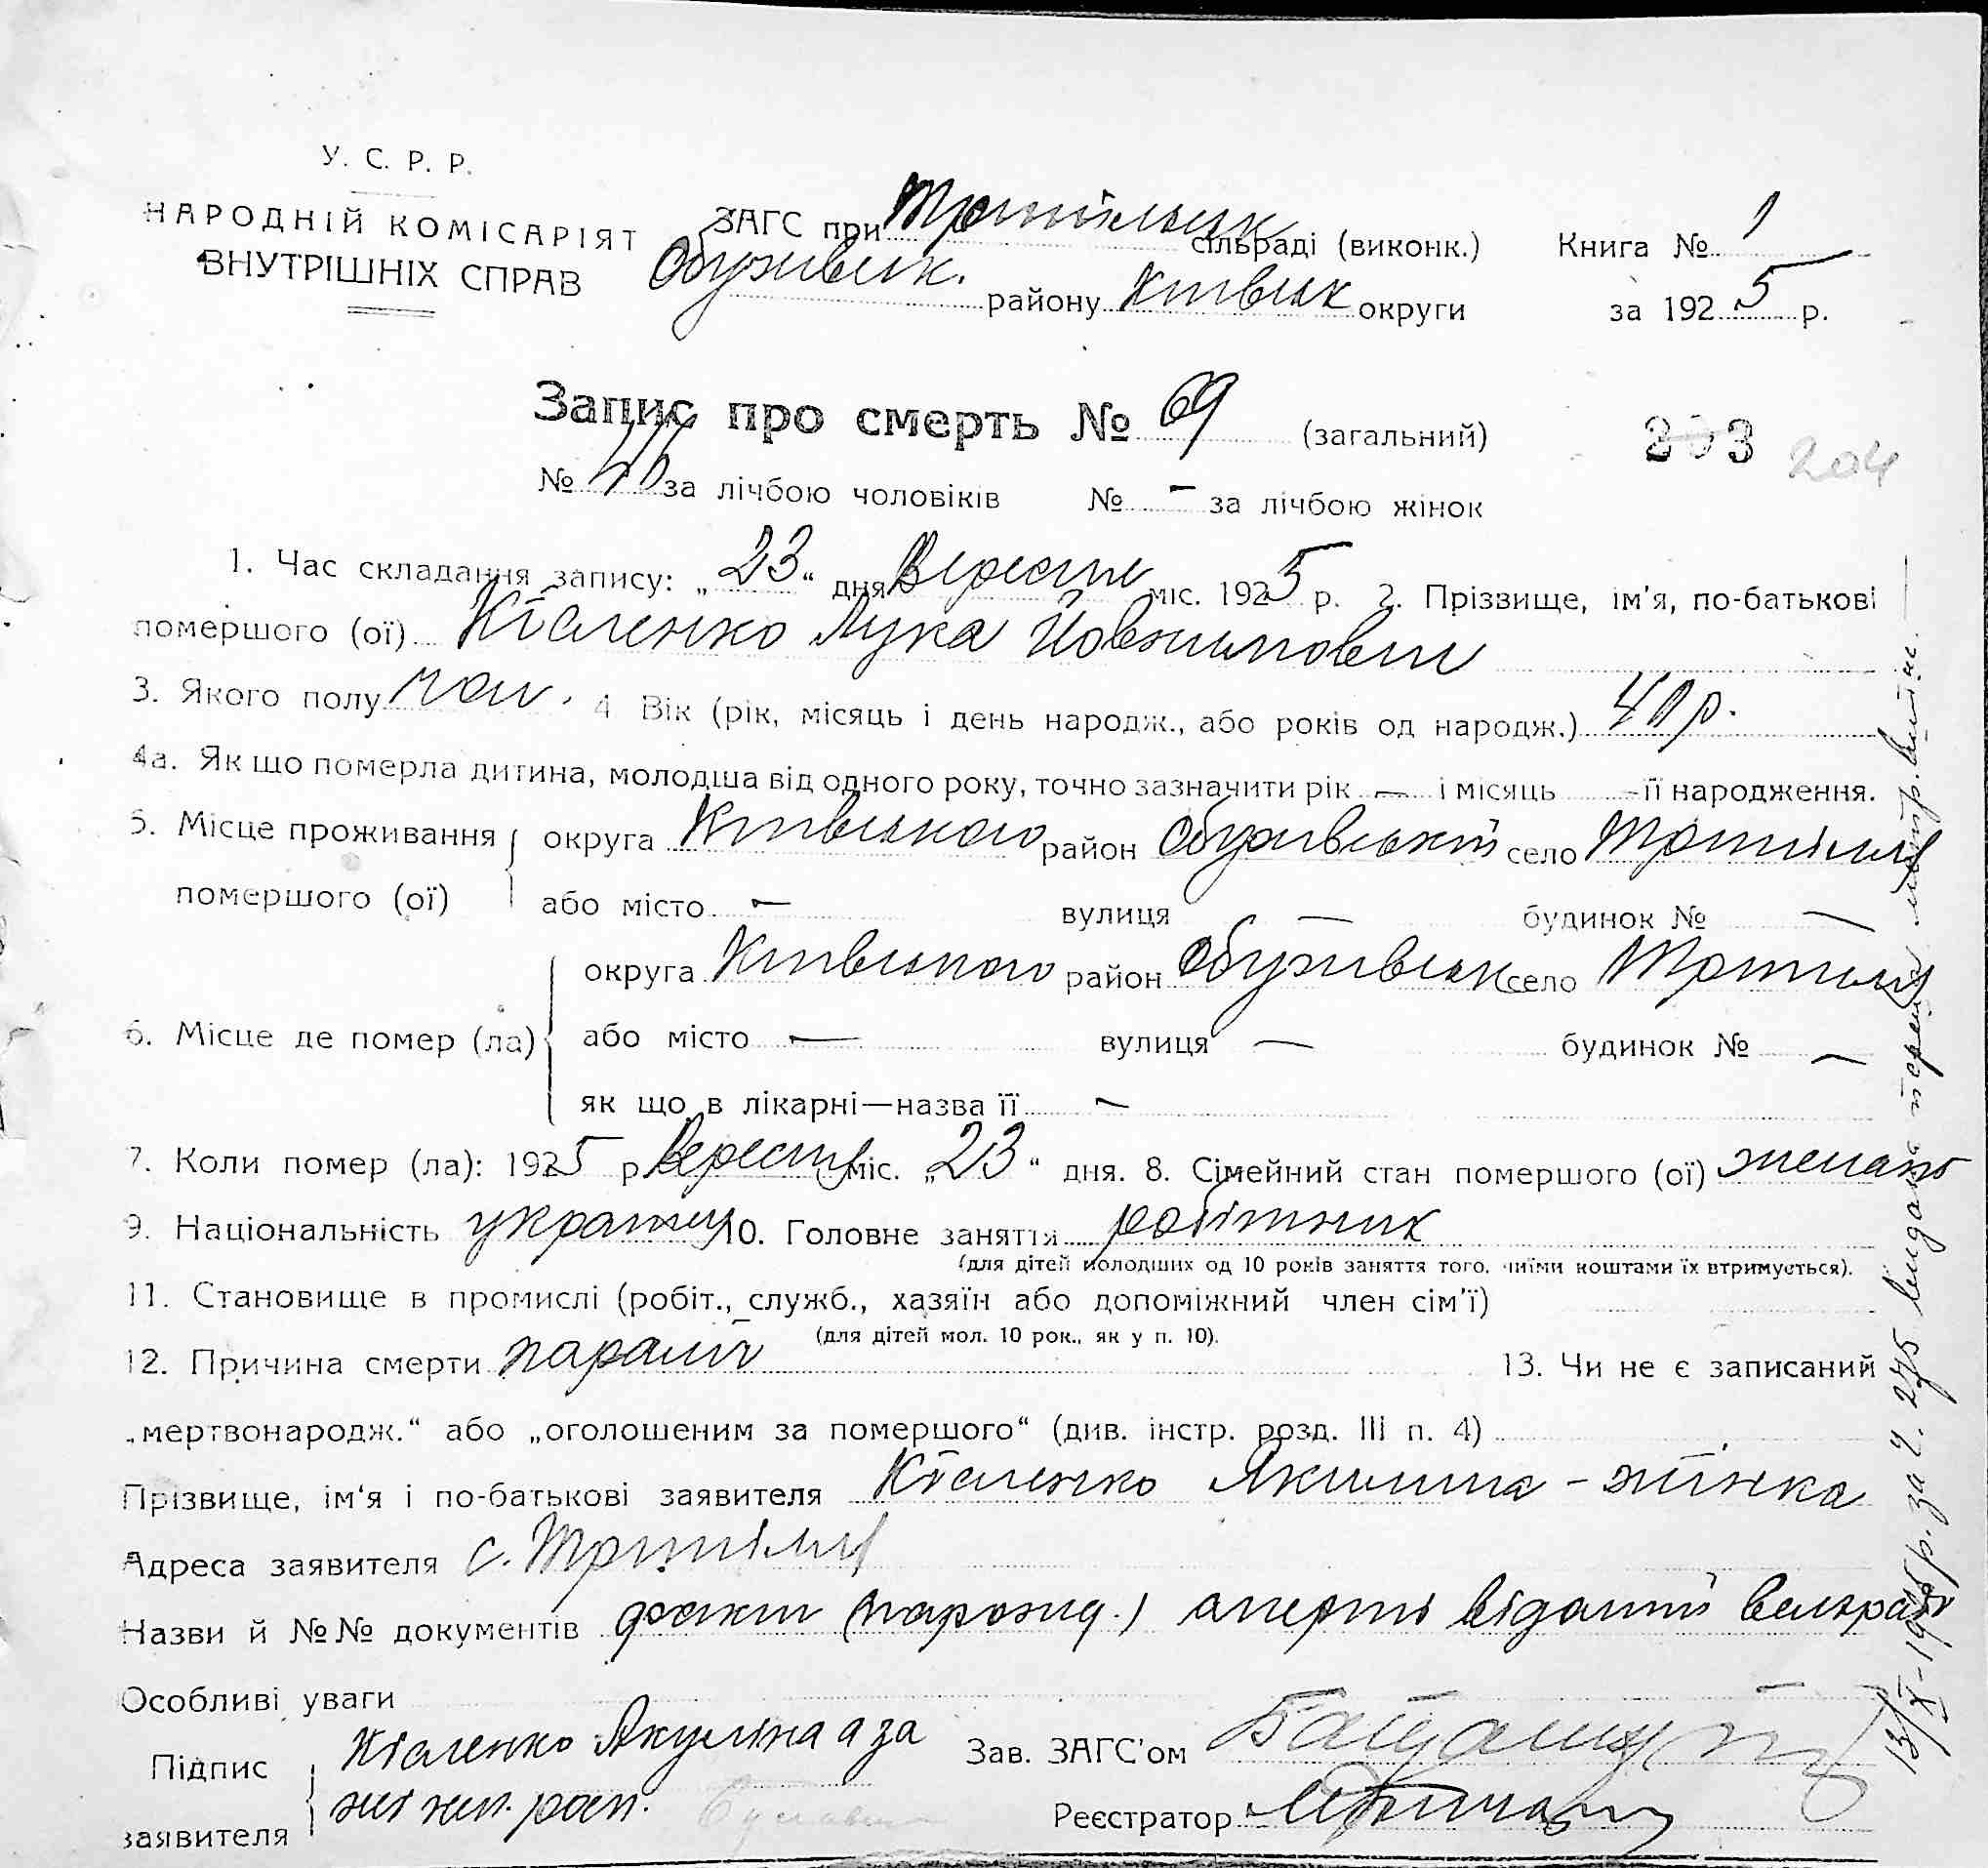 У. С. Р. Р.
НАРОДНІЙ КОМІСАРІЯТ
ВНУТРІШНІХ СПРАВ
ЗАГС при Трипільськ сільраді (виконк.) Книга № 1
Обухівськ. району Київськ округи за 1925 р.
Запис про смерть № 69 (загальний)
203 204
№ 40 за лічбою чоловіків № – за лічбою жінок
1. Час складання запису: „23“ дня Вересня міс. 1925 р. 2. Прізвище, ім'я, по-батькові
помершого (ої) Кіяленко Лука Йовхимович
3. Якого полу чол. 4 Вік (рік, місяць і день народж., або років од народж.) 40 р.
4а. Як що померла дитина, молодша від одного року, точно зазначити рік — і місяць – її народження.
5. Місце проживання округа Київського район Обухівський село Трипілля
помершого (ої) або місто — вулиця — будинок № —
округа Київського район Обухівськ село Трипілля
6. Місце де помер (ла) або місто — вулиця — будинок № —
як що в лікарні—назва її —
7. Коли помер (ла): 1925 р Вересня міс. „23“ дня. 8. Сімейний стан помершого (ої) женат
9. Національність украінец 10. Головне заняття робітник
(для дітей молодших од 10 років заняття того, чиїми коштами їх втримується).
11. Становище в промислі (робіт., служб., хазяїн або допоміжний член сім'ї)
(для дітей мол. 10 рок., як у п. 10).
12. Причина смерти параліч 13. Чи не є записаний
„мертвонародж.“ або „оголошеним за помершого“ (див. інстр. розд. III п. 4)
Прізвище, ім'я і по-батькові заявителя Кіяленко Якилина - жінка
Адреса заявителя с. Трипілля
Назви й №№ документів
Особливі уваги
Підпис заявителя Кіяленко Якуліна а за
Зав. ЗАГС'ом
Реєстратор
13/X-1925 р. за ч. 275 видана